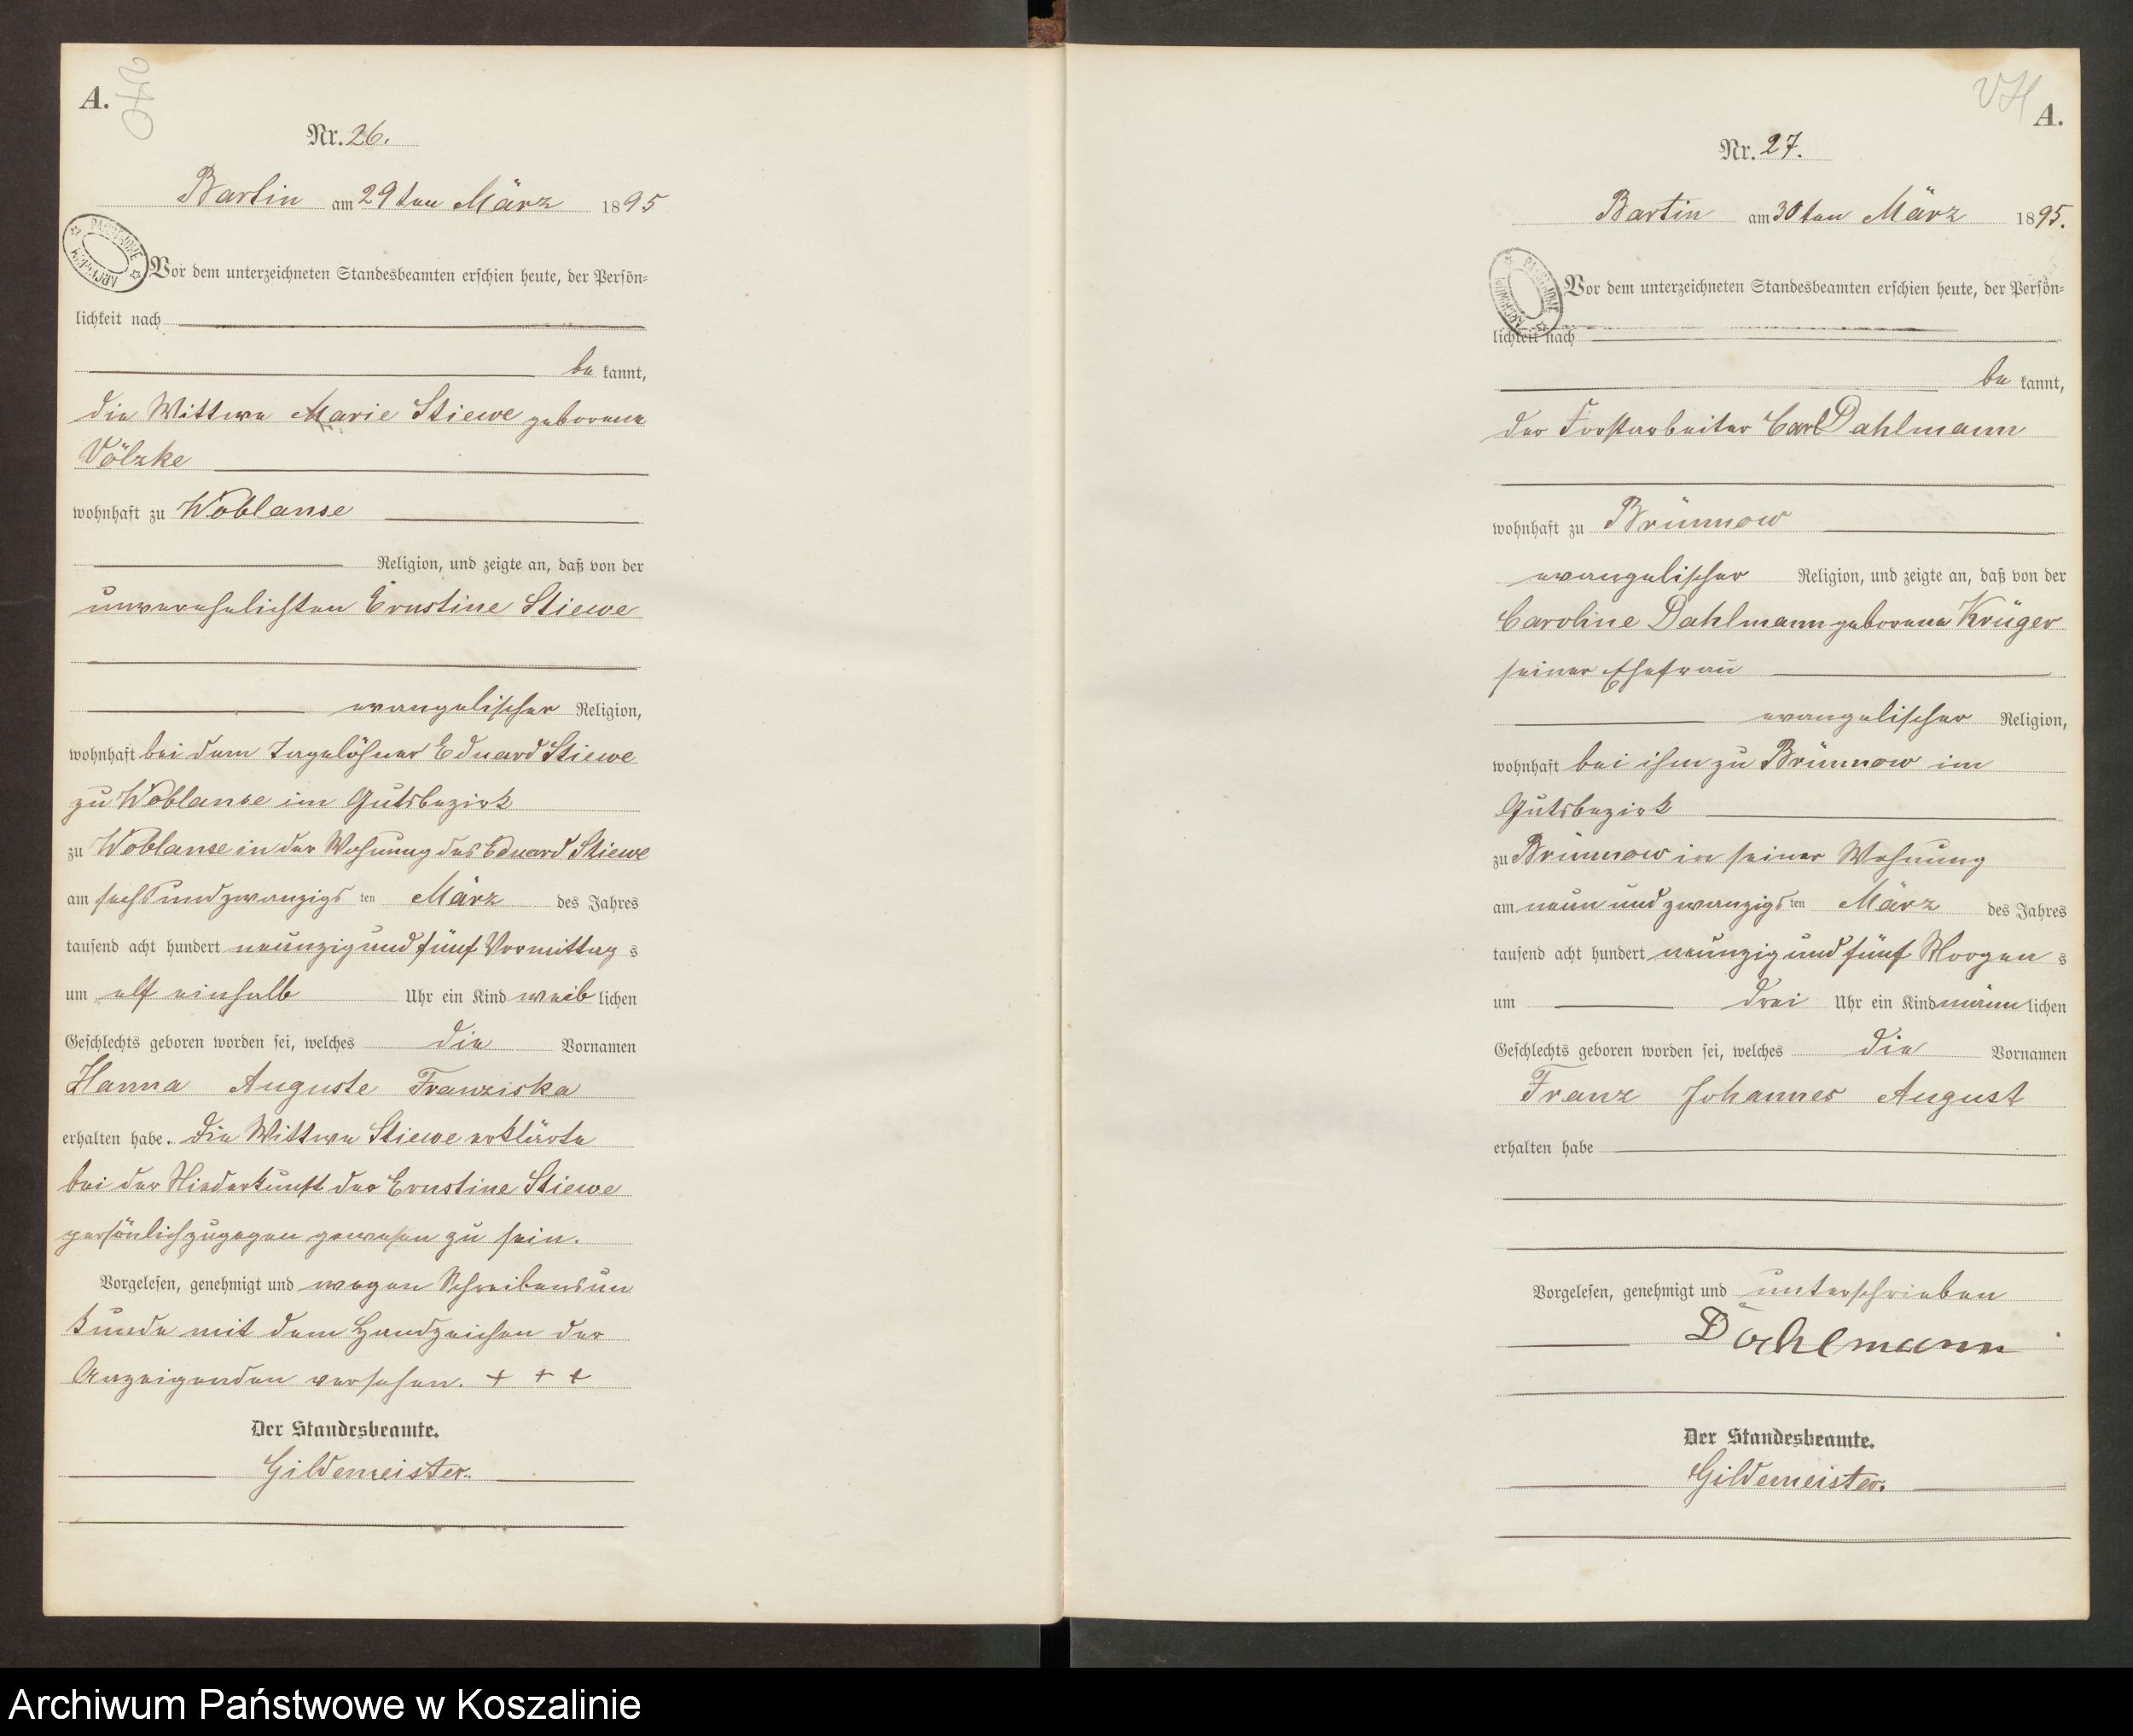 A.
Nr. 26.
Bartin am 29ten März 1895
Vor dem unterzeichneten Standesbeamten erschien heute, der Persön-
lichkeit nach
bekannt,
die Wittwe Marie Stiewe geborene
Völzke
wohnhaft zu Woblanse
Religion, und zeigte an, daß von der
unverehelichten Ernstine Stiewe
evangelischer Religion,
wohnhaft bei dem Tagelöhner Eduard Stiewe
zu Woblanse im Gutsbezirk
zu Woblanse in der Wohnung des Eduard Stiewe
am sechsundzwanzigsten März des Jahres
tausend acht hundert neunzig und fünf Vormittags
um elf einhalb Uhr ein Kind weiblichen
Geschlechts geboren worden sei, welches die Vornamen
Hanna Auguste Franziska
erhalten habe. Die Wittwe Stiewe erklärte
bei der Niederkunft der Ernstine Stiewe
persönlich zugegen gewesen zu sein.
Vorgelesen, genehmigt und wegen Schreibensun
kunde mit dem Handzeichen der
Anzeigenden versehen. + + +
Der Standesbeamte.
Gildemeister.
A.
Nr. 27.
Bartin am 30ten März 1895.
Vor dem unterzeichneten Standesbeamten erschien heute, der Persön-
lichkeit nach
bekannt,
der Forstarbeiter Carl Dahlmann
wohnhaft zu Brünnow
evangelischer Religion, und zeigte an, daß von der
Caroline Dahlmann geborene Krüger
seiner Ehefrau
evangelischer Religion,
wohnhaft bei ihm zu Brünnow im
Gutsbezirk
zu Brünnow in seiner Wohnung
am neun und zwanzigsten März des Jahres
tausend acht hundert neunzig und fünf Morgens
um drei Uhr ein Kind männlichen
Geschlechts geboren worden sei, welches die Vornamen
Franz Johannes August
erhalten habe
Vorgelesen, genehmigt und unterschrieben
Dahlmann
Der Standesbeamte.
Gildemeister.
Archiwum Państwowe w Koszalinie